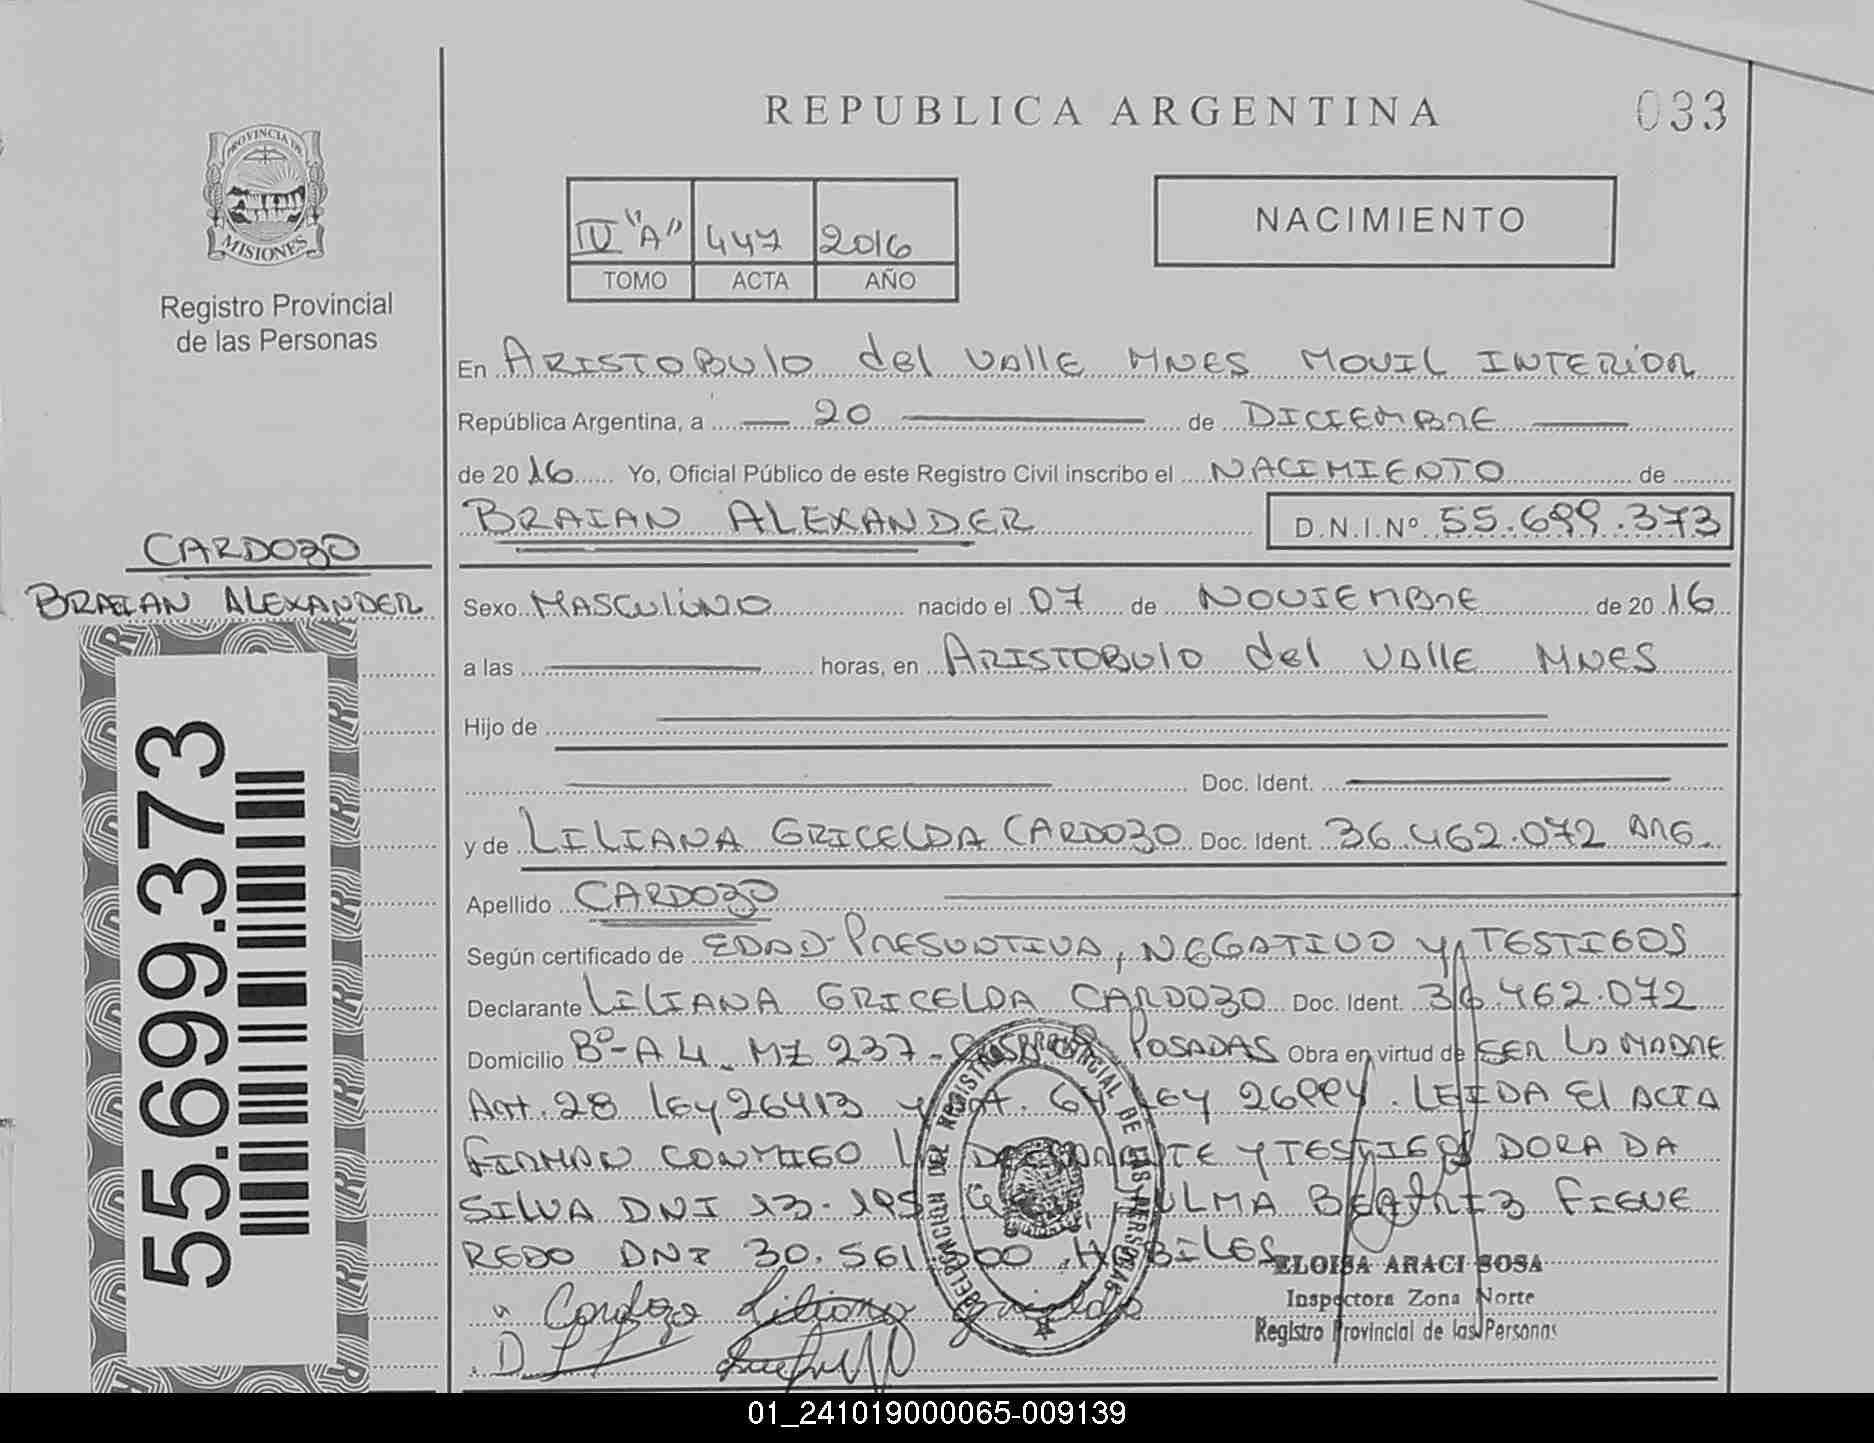 REPUBLICA ARGENTINA
033
PROVINCIA DE
MISIONES
Registro Provincial
de las Personas
IV "A" 447 2016
TOMO ACTA AÑO
NACIMIENTO
En ARISTOBULO del VALLE MNES MOVIL INTERIOR
República Argentina, a 20 de DICIEMBRE
de 2016 Yo, Oficial Público de este Registro Civil inscribo el NACIMIENTO de
BRAIAN ALEXANDER D.N.I.Nº 55.699.373
CARDOZO
BRAIAN ALEXANDER
55.699.373
Sexo MASCULINO nacido el 07 de NOVIEMBRE de 2016
a las horas, en ARISTOBULO del VALLE MNES
Hijo de
Doc. Ident.
y de LILIANA GRICELDA CARDOZO Doc. Ident. 36.462.072 ARG.
Apellido CARDOZO
Según certificado de EDAD PRESUNTIVA, NEGATIVO y TESTIGOS
Declarante LILIANA GRICELDA CARDOZO Doc. Ident. 36.462.072
Domicilio Bº-A4 MZ 237- POSADAS Obra en virtud de SER LA MADRE
Art. 28 ley 26413 y 64 LEY 26994. LEIDA El ACTA
FIRMAN CONMIGO LA DECLARANTE Y TESTIGOS DORA DA
SILVA DNI 13.195 ZULMA BEATRIZ FIGUE
REDO DNI 30.561 HABILES
Cardozo Liliana Gricelda
DELEGACION DEL REGISTRO PROVINCIAL DE LAS PERSONAS
ELOISA ARACI SOSA
Inspectora Zona Norte
Registro Provincial de las Personas
01_241019000065-009139